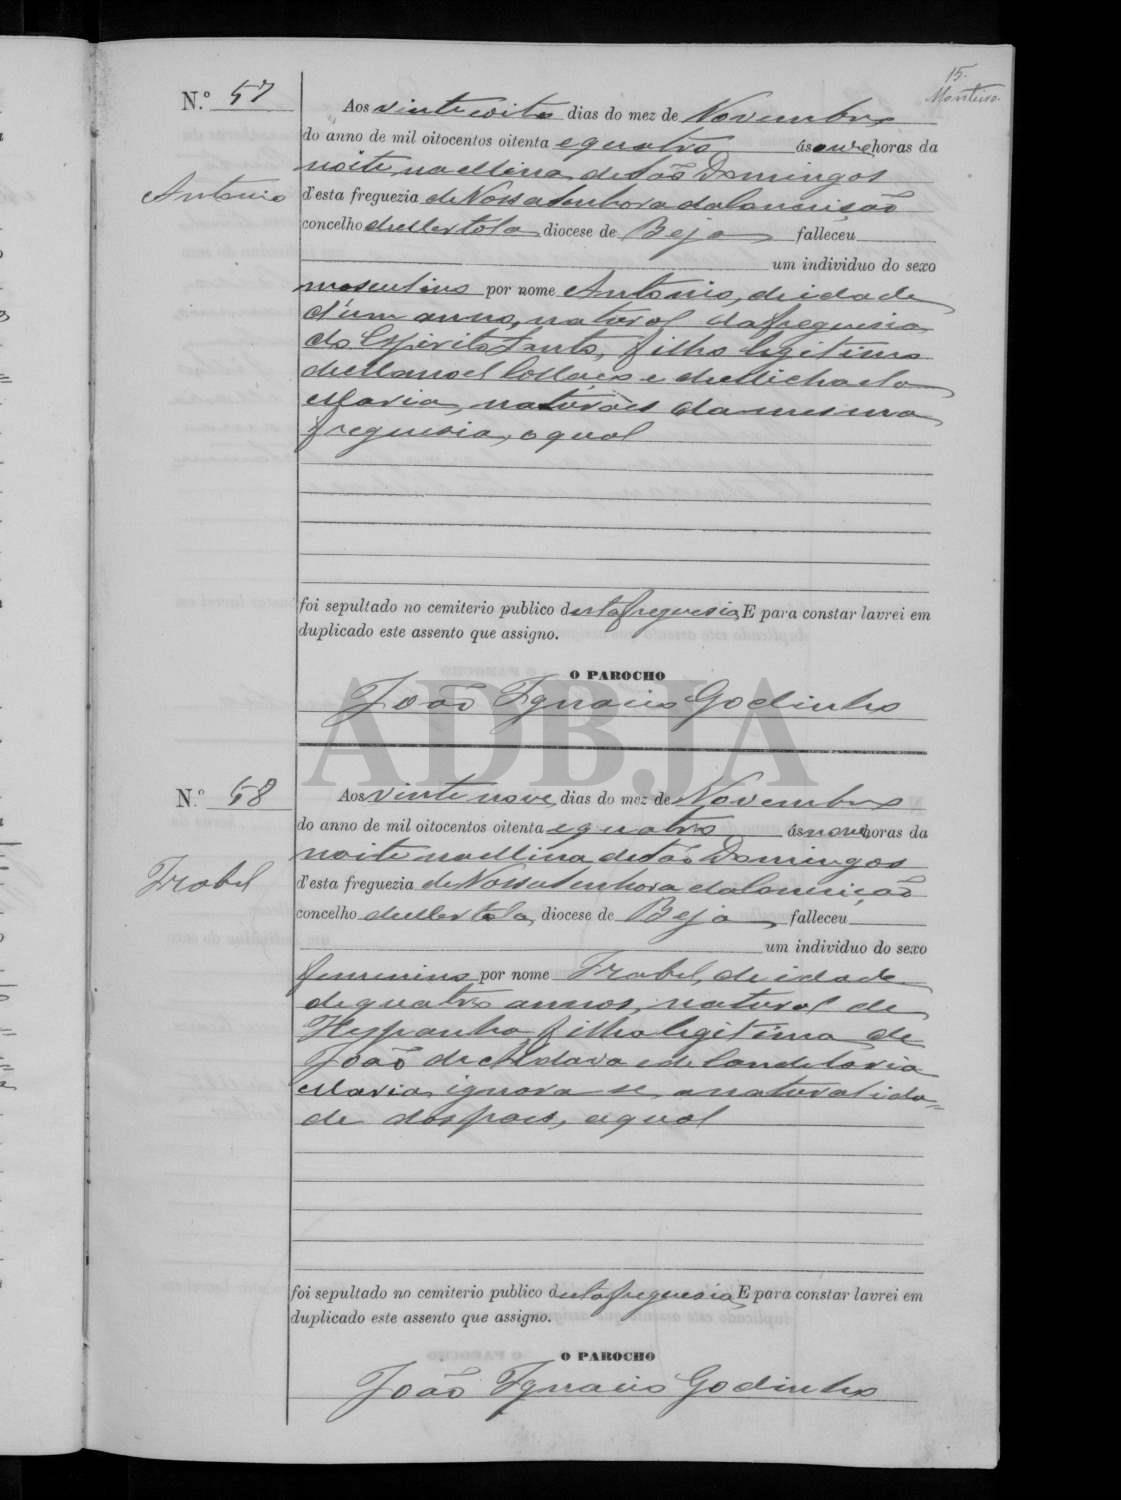 15.
Monteiro
N.º 57
Antonio
Aos vinte oito dias do mez de Novembro
do anno de mil oitocentos oitenta e quatro ás onze horas da
noite, na Mina de São Domingos
d'esta freguezia de Nossa Senhora da Conceição
concelho de Mertola, diocese de Beja falleceu
um individuo do sexo
masculino por nome Antonio, de idade
d'um anno, natural da freguesia
do Espirito Santo, filho legitimo
de Manoel Collaço e de Michaela
Maria, naturaes da mesma
freguesia, o qual
foi sepultado no cemiterio publico desta freguesia, E para constar lavrei em
duplicado este assento que assigno.
O PAROCHO
João Ignacio Godinho
ADBJA
N.º 58
Izabel
Aos vinte nove, dias do mez de Novembro
do anno de mil oitocentos oitenta e quatro ás nove horas da
noite na Mina de São Domingos
d'esta freguezia de Nossa Senhora da Conceição
concelho de Mertola, diocese de Beja falleceu
um individuo do sexo
femenino por nome Izabel, de idade
de quatro annos, natural de
Hespanha, filha legitima de
João de Aldava e de Candelaria
Maria, ignora se a naturalida=
de dos paes, a qual
foi sepultado no cemiterio publico desta freguesia, E para constar lavrei em
duplicado este assento que assigno.
O PAROCHO
João Ignacio Godinho